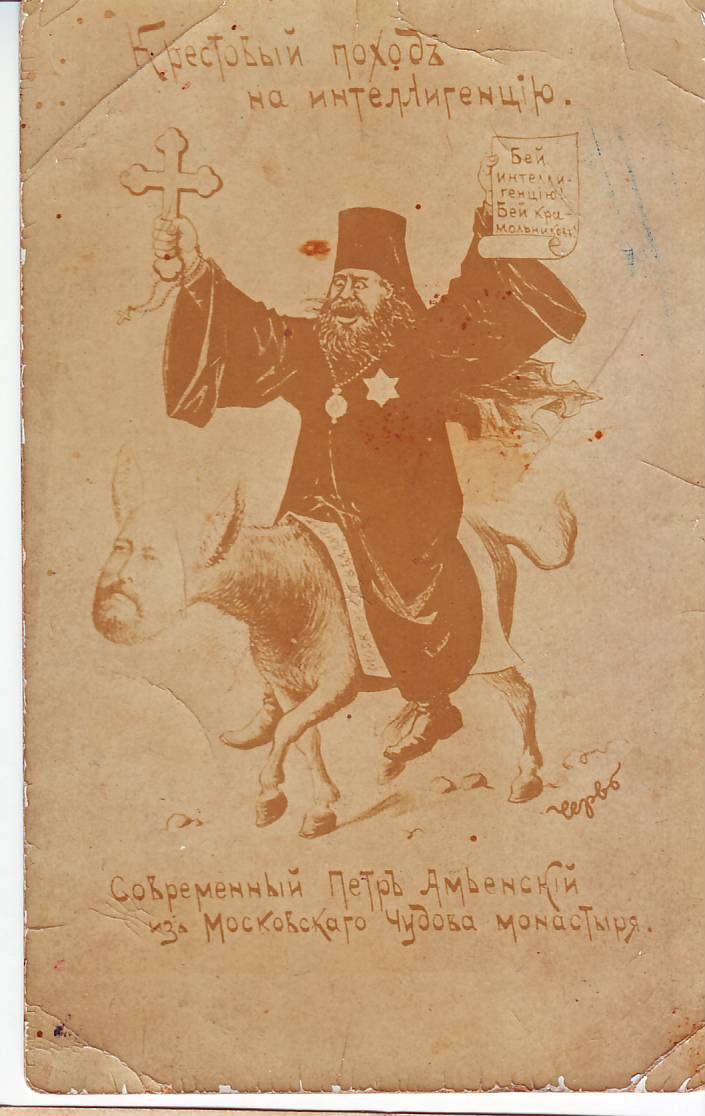 Крестовый походъ
на интеллигенцію.
Бей
интелли-
генцію!
Бей кра-
мольниковъ!
Червь
Современный Петръ Амьенскій
изъ Московскаго Чудова монастыря.